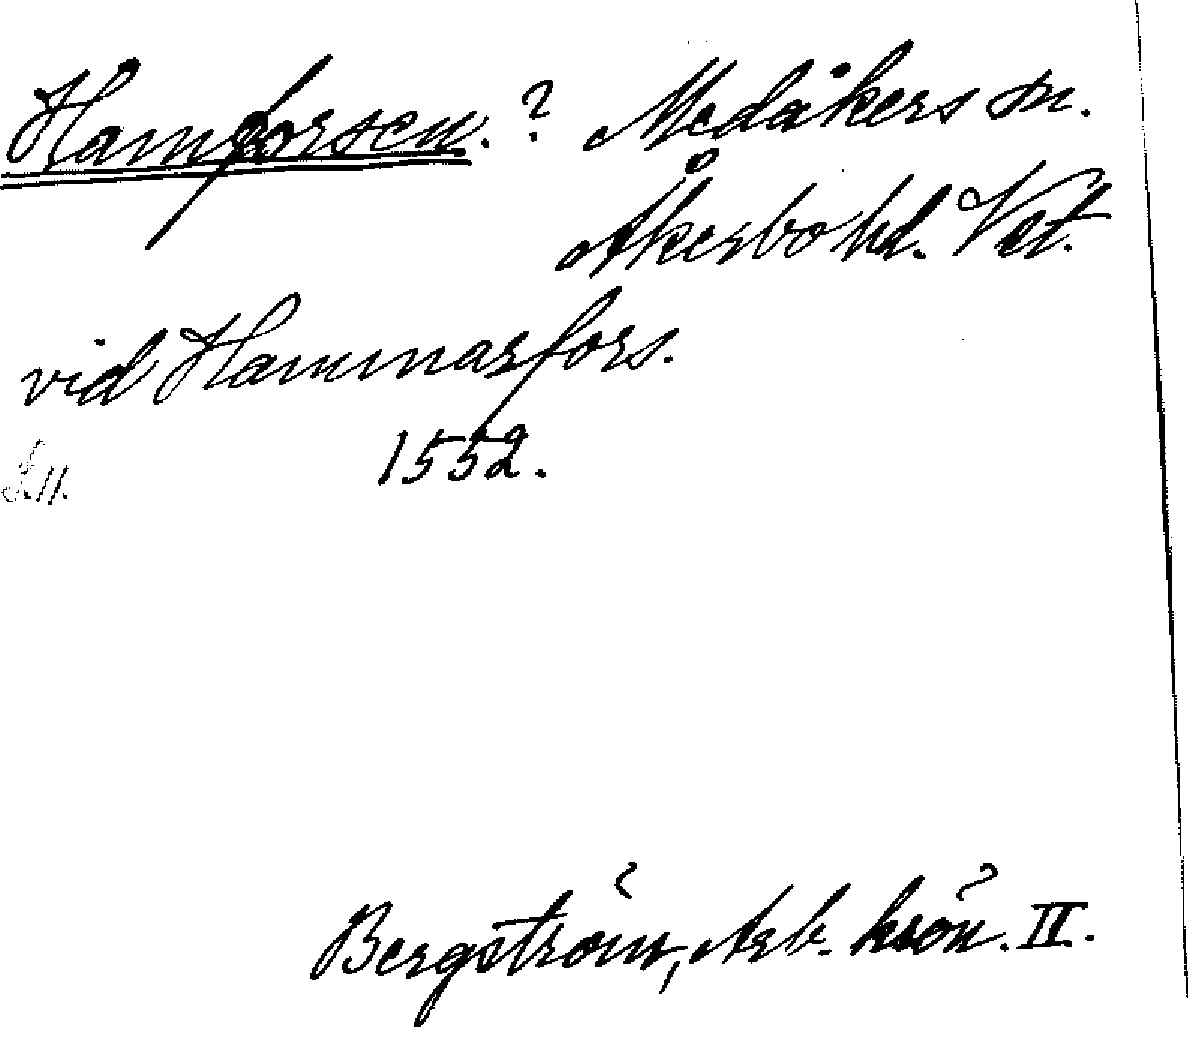 Hamforsen. ? Medåkers sn.
Åkerbo hd. Vst.
vid Hammarfors.
1552.
Bergström, Arb. krön. II.